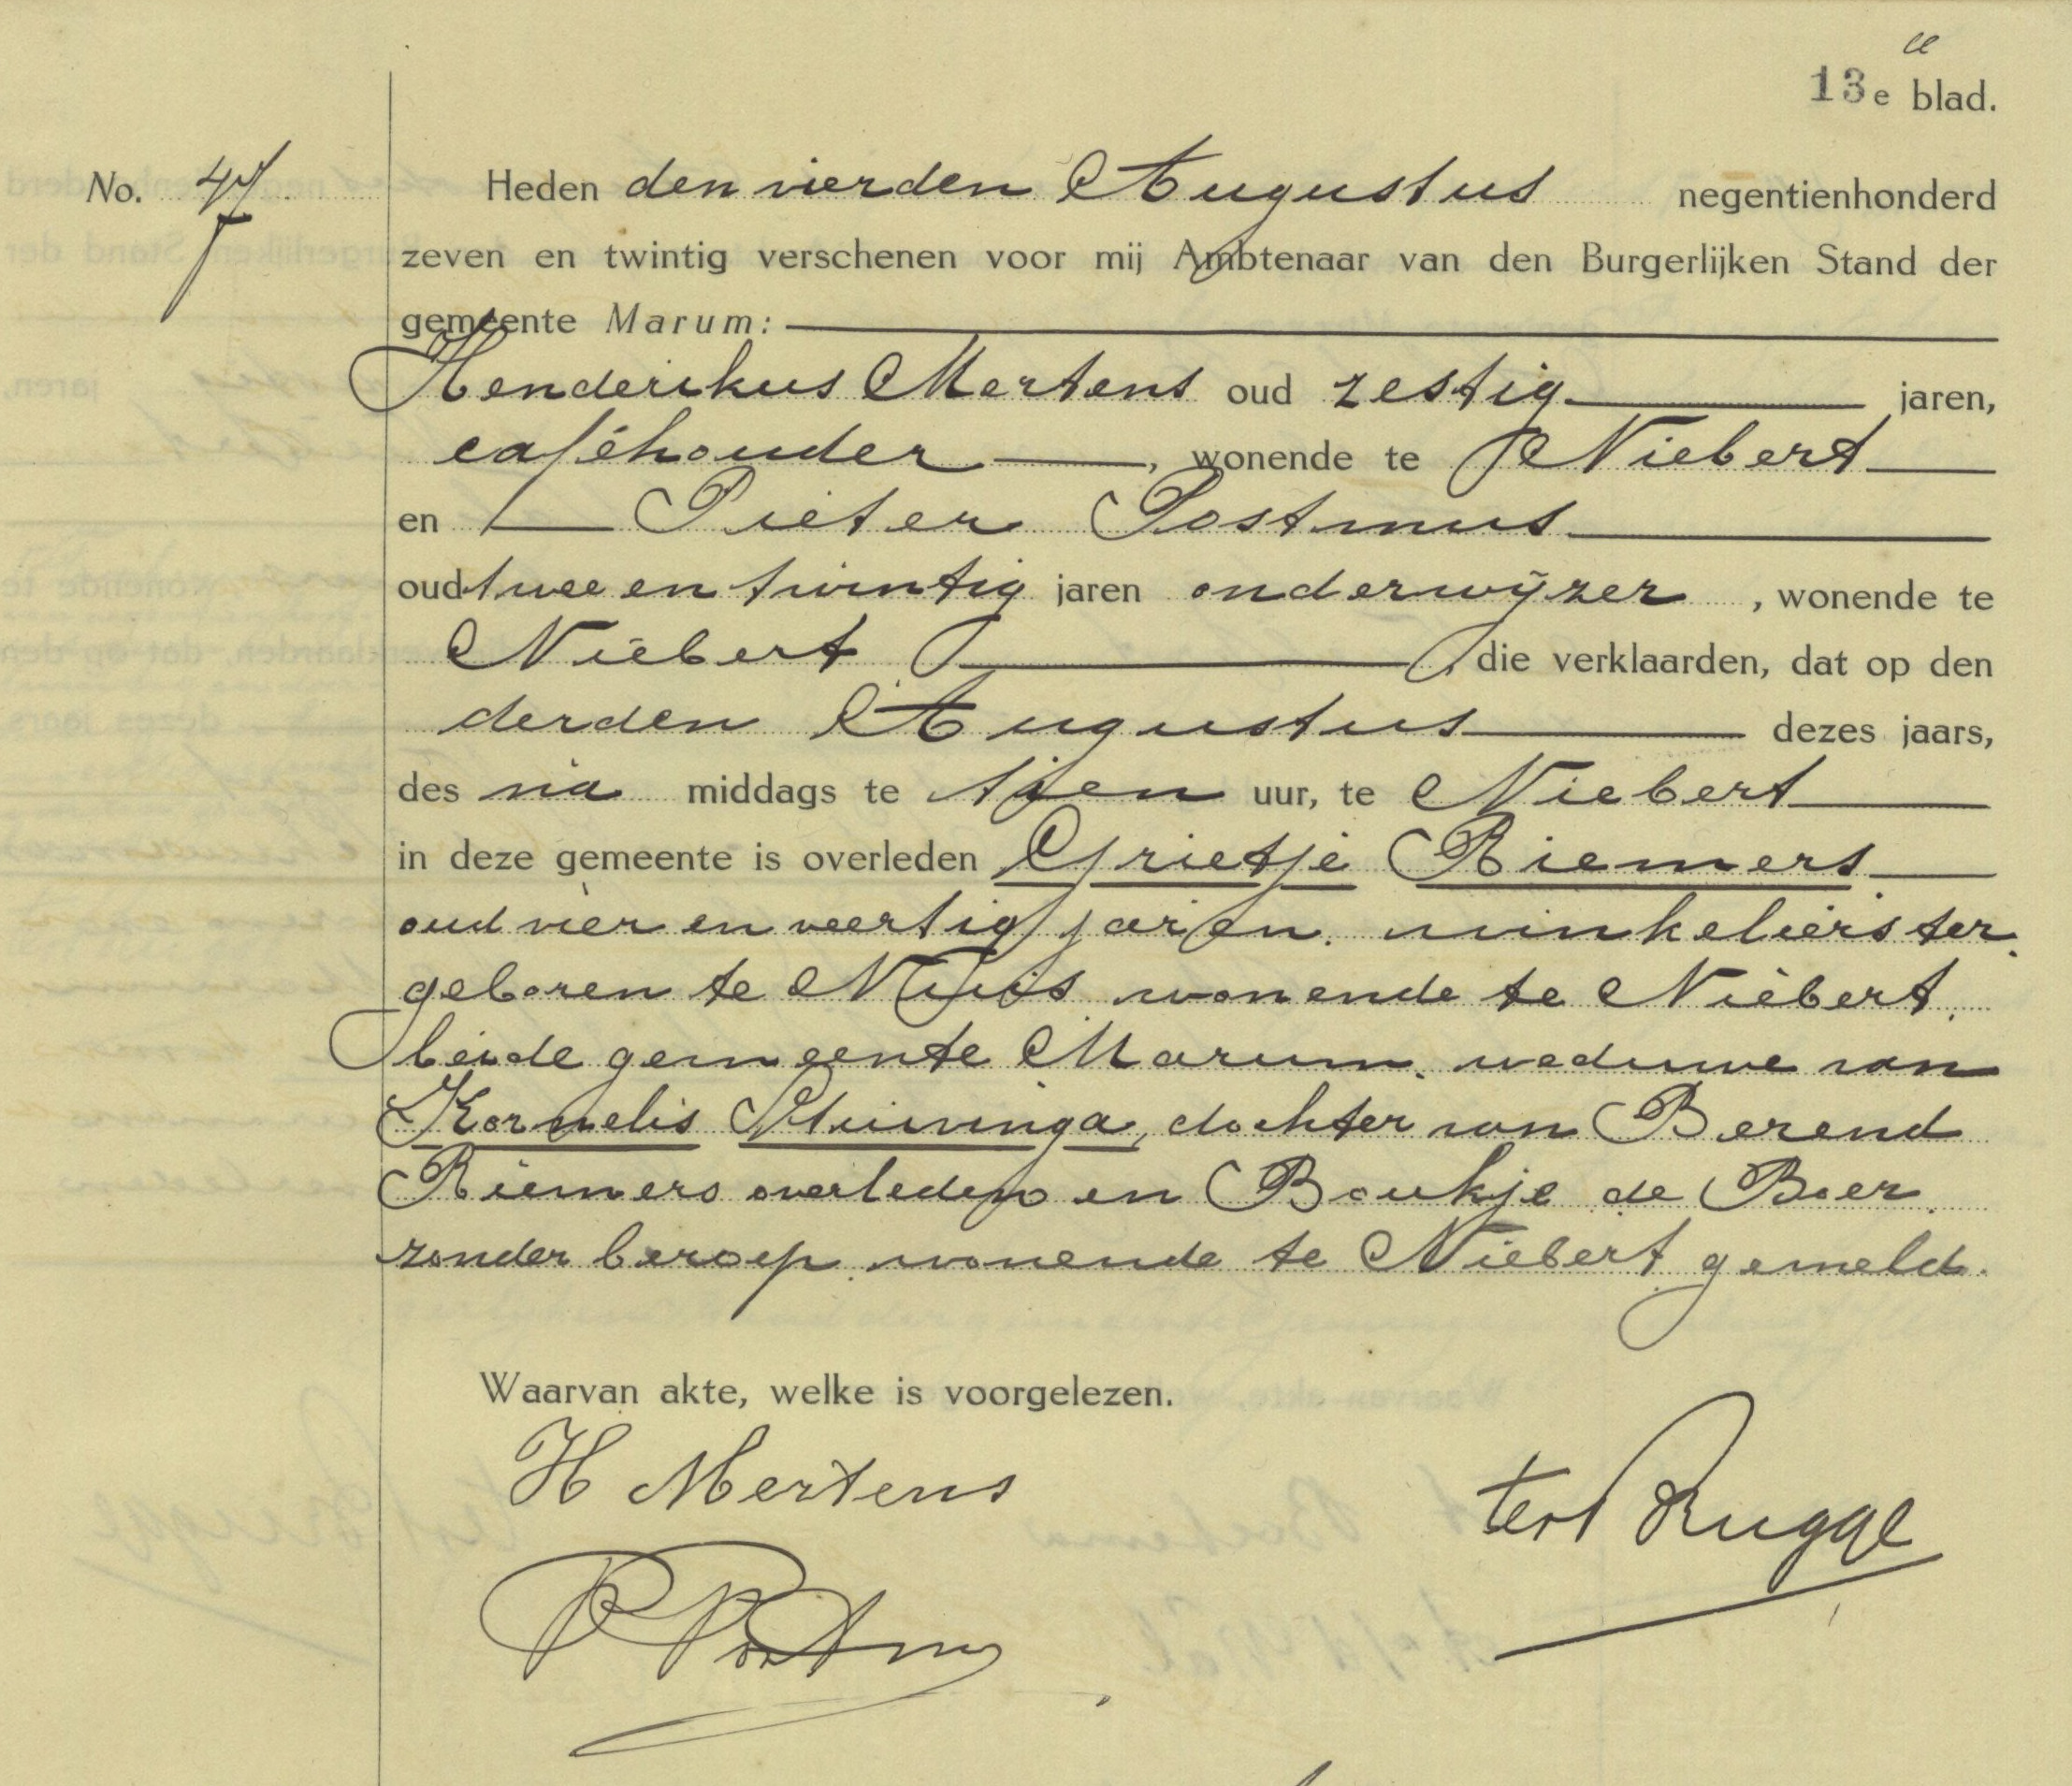 a
13e blad.
No. 47
Heden den vierden Augustus negentienhonderd
zeven en twintig verschenen voor mij Ambtenaar van den Burgerlijken Stand der
gemeente Marum:
Henderikus Mertens oud zestig jaren,
caféhouder, wonende te Niebert
en Pieter Postmus
oud twee en twintig jaren onderwijzer, wonende te
Niebert, die verklaarden, dat op den
derden Augustus dezes jaars,
des na middags te tien uur, te Niebert
in deze gemeente is overleden Grietje Riemers
oud vier en veertig jaren, winkelierster,
geboren te Nuis wonende te Niebert,
beide gemeente Marum, weduwe van
Kornelis Sluivinga, dochter van Berend
Riemers overleden en Boukje de Boer,
zonder beroep, wonende te Niebert gemeld.
Waarvan akte, welke is voorgelezen.
H Mertens
ter Brugge
P Postmus